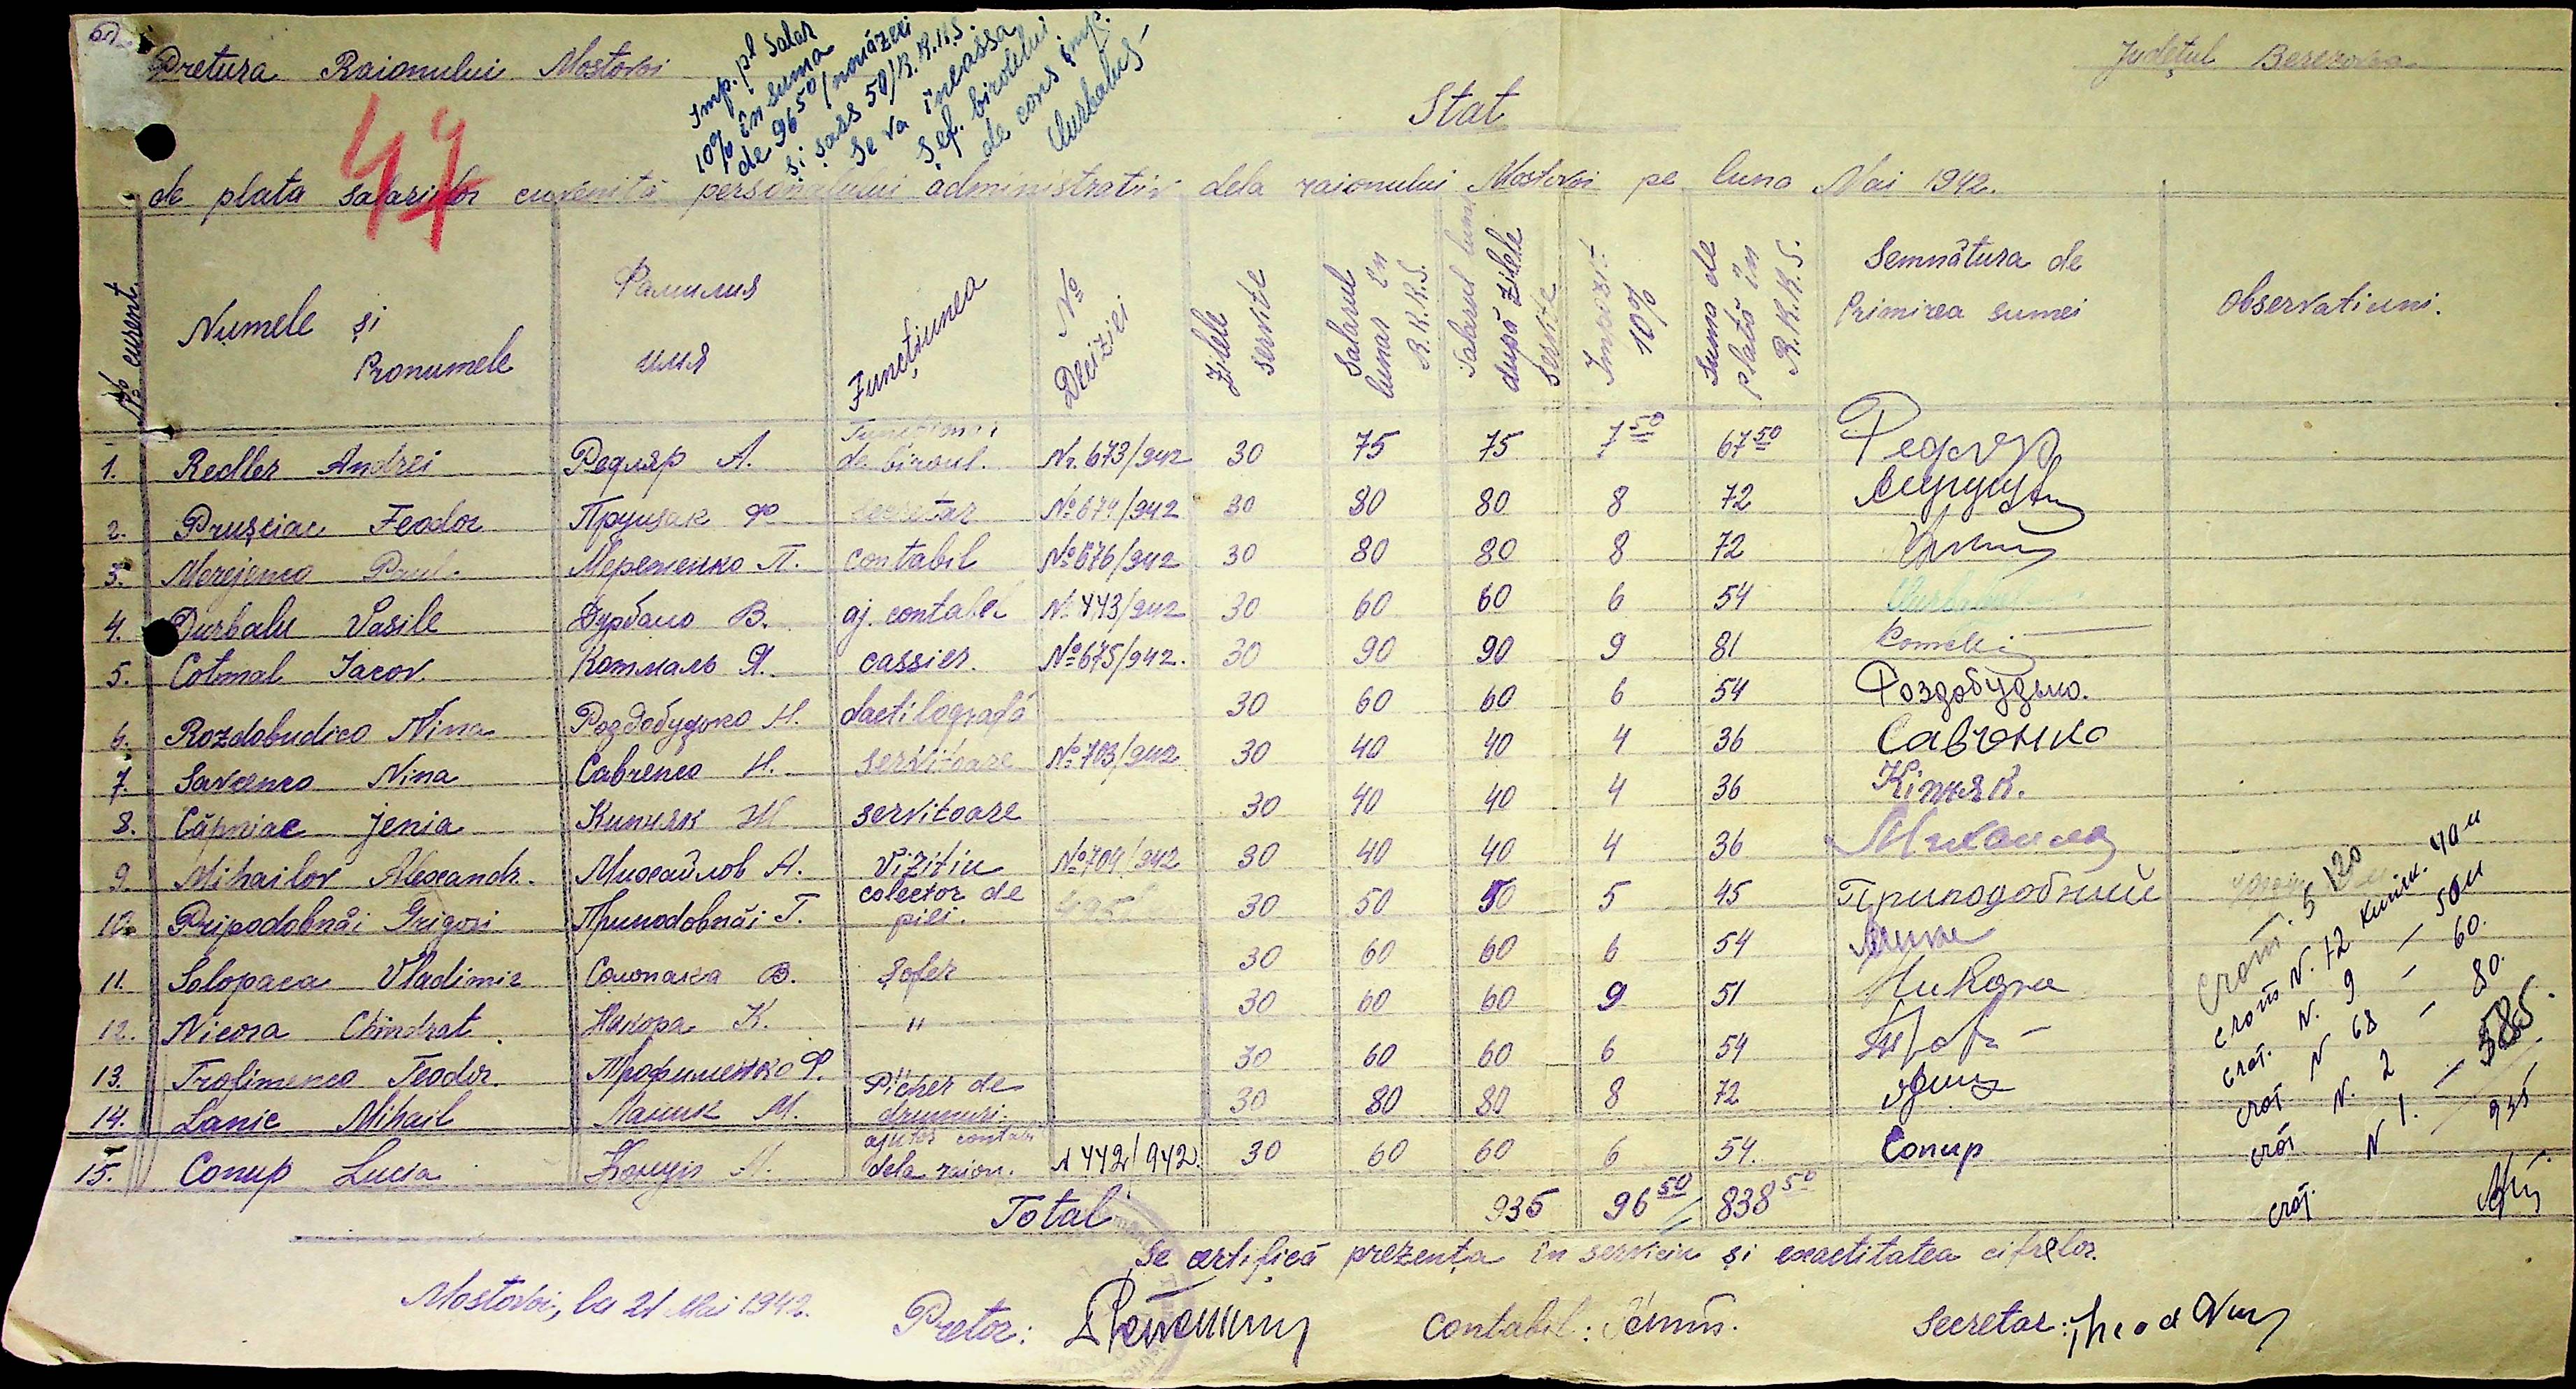 Pretura Raionului Mostovoi
Județul Berezovca
Imp. pl salar
10% în suma
de 96 50/nouăzeci
și șass 50/R.K.K.S.
Se va încassa
șef. biroului
de cons imp.
Durbalus
47
Stat
de plata salariilor cuvenită personalului administrativ dela raionului Mostovoi pe luna Mai 1942.
№ curent
Numele și Pronumele
Фамилия имя
Funcțiunea
№ Deciziei
Zilele servite
Salarul lunar în R.K.K.S.
Salarul lunar după zilele servite
Impozit 10%
Suma de plată în R.K.K.S.
Semnătura de Primirea sumei
Observatiuni.
1. Redler Andrei Редляр А. de biroul. Nr. 673/942 30 75 75 7 50 67 50
2. Prușciac Feodor Прущак Ф secretar №674/942 30 80 80 8 72
3. Merejenco Paul Мереженко П. contabil №676/942 30 80 80 8 72
4. Durbalu Vasile Дурбало В. aj. contabel № 443/942 30 60 60 6 54
5. Cotmal Iacov Котмаль Я. cassier. №675/942. 30 90 90 9 81
6. Rozdobudico Nina Роздобудько Н. dactilografă 30 60 60 6 54 Роздобудько.
7. Savcenco Nina Савченко Н. servitoare №703/942 30 40 40 4 36 Савченко
8. Căpniac Jenia Кипняк Ж servitoare 30 40 40 4 36 Кіпняк.
9. Mihailov Alexandr. Михайлов А. Vizitiu №704/942 30 40 40 4 36
10. Pripodobnăi Grigori Приподобнăі Г. colector de piei. 30 50 50 5 45 Приподобный
11. Solopaca Vladimir Солопака В. Șofer 30 60 60 6 54
12. Nicora Chindrat. Никора К. " 30 60 60 9 51 Никора
13. Trofimenco Feodor. Трофименко Ф. " 30 60 60 6 54
14. Lanic Mihail Ланик М. Picher de drumuri. 30 80 80 8 72
15. Conup Lucia ajutor contab dela raion. № 442/942. 30 60 60 6 54. Conup
Total 935 96 50 838 50
N. 12 40
N. 9 — 50
N 68 — 60.
N. 2 — 80.
N 1. — 585.
935
Se certifică prezența în serviciu și exactitatea cifrelor.
Mostovoi, la 21 Mai 1942.
Pretor:
Contabil:
Secretar: